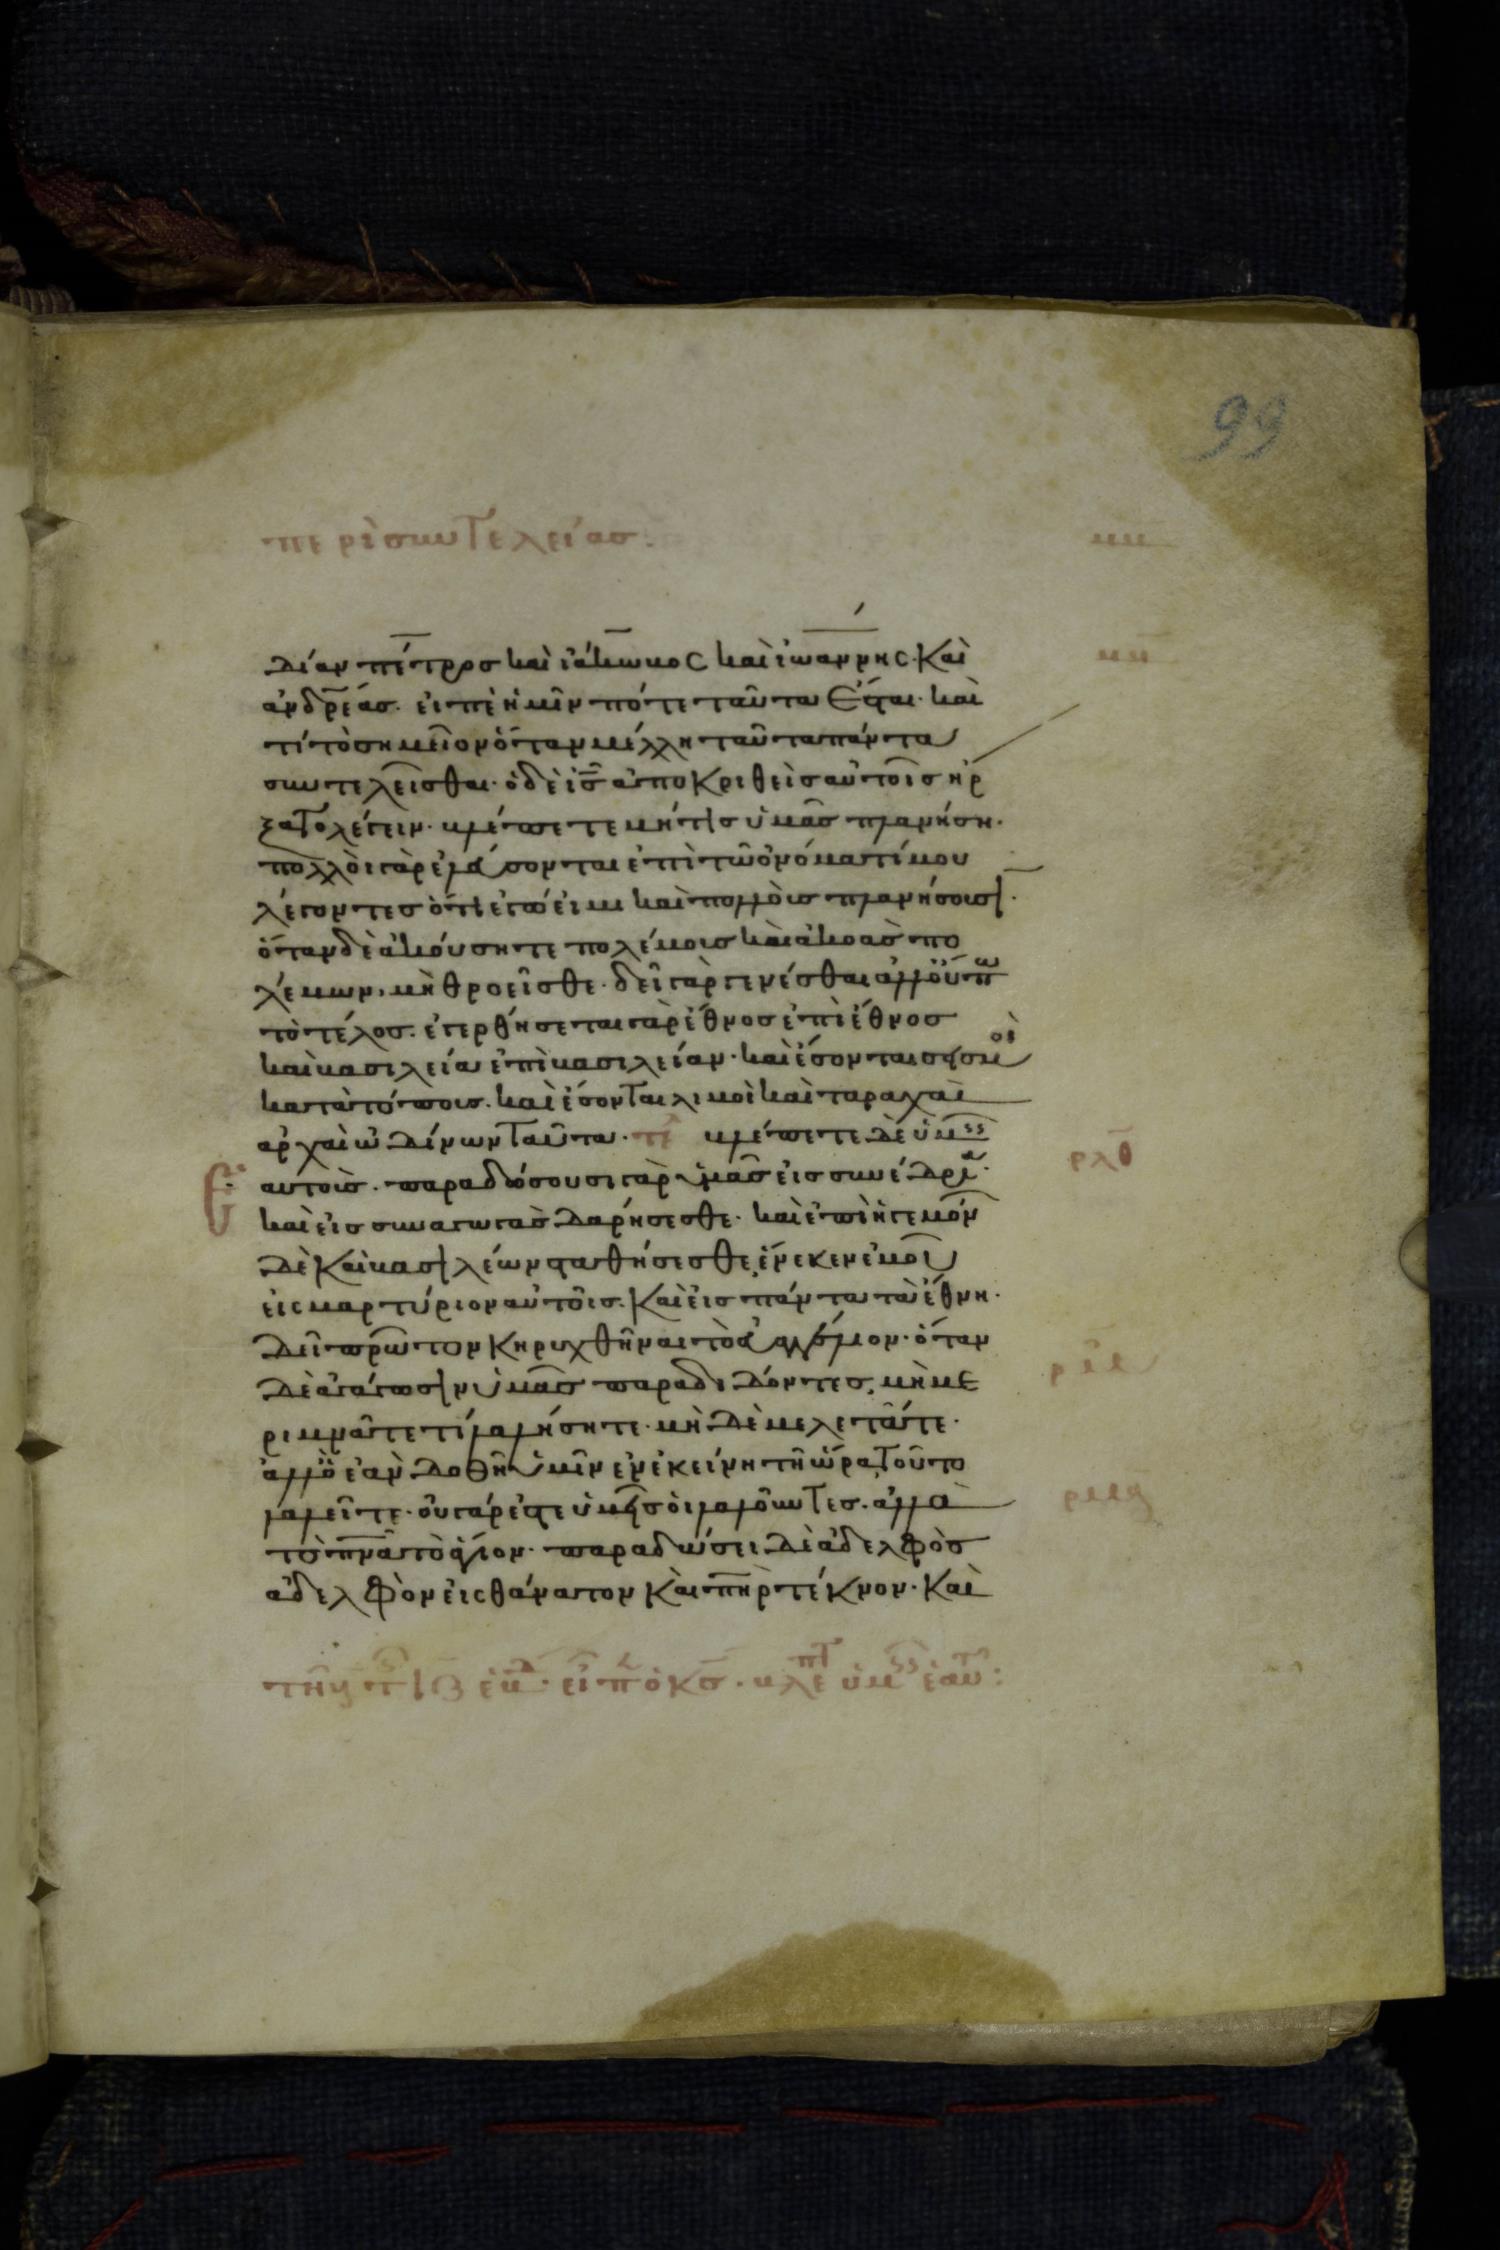 99
περὶ συντελείασ.
δίαν πέτροσ καὶ ἰάκωβος καὶ ἰωάννης. Καὶ
ἀνδρέασ. εἰπὲ ἡμῖν πότε ταῦτα ἔσται. καὶ
τί τὸ σημεῖον ὅταν μέλλη ταῦτα πάντα
συντελεῖσθαι. ὁ δὲ ἰσ ἀποκριθεὶσ αὐτοῖσ ἤρ
ξατο λέγειν. βλέπετε μήτισ ὑμᾶσ πλανήση.
πολλοὶ γὰρ ἐλεύσονται ἐπὶ τῶ ὀνόματί μου
λέγοντεσ ὅτι ἐγώ εἰμι καὶ πολλοὺσ πλανήσουσι.
ὅταν δὲ ἀκούσητε πολέμουσ καὶ ἀκοὰσ πο
λέμων, μὴ θροεῖσθε. δεῖ γὰρ γενέσθαι ἀλλ οὔπω
τὸ τέλοσ. ἐγερθήσεται γὰρ ἔθνοσ ἐπὶ ἔθνοσ
καὶ βασιλεία ἐπὶ βασιλείαν. καὶ ἔσονται σεισμοὶ
κατὰ τόπουσ. καὶ ἔσονται λιμοὶ καὶ ταραχαὶ
ἀρχαὶ ὠδίνων ταῦτα. τε βλέπετε δὲ ὑμεῖσ
ρλθ
αυτοὺσ. παραδώσουσι γὰρ ὑμᾶσ εἰσ συνέδρια.
καὶ εἰσ συναγωγὰσ δαρήσεσθε. καὶ ἐπὶ ἡγεμόνων
δὲ καὶ βασιλέων σταθήσεσθε, ἕνεκεν ἐμοῦ
εἰς μαρτύριον αὐτοῖσ. Καὶ εἰσ πάντα τὰ ἔθνη.
δεῖ πρῶτον κηρυχθῆναι τὸ εὐαγγέλιον. ὅταν
δὲ ἀγάγωσιν ὑμᾶσ παραδιδόντεσ, μὴ με
ριμνᾶτε τί λαλήσητε. μὴ δὲ μελετᾶτε.
ἀλλ ὃ ἐὰν δοθῆ ὑμῖν ἐν ἐκείνη τῆ ὥρα, τοῦτο
λαλεῖτε. οὐ γάρ ἐστε ὑμεῖσ οἱ λαλοῦντεσ. ἀλλὰ
τὸ πνα τὸ ἅγιον. παραδώσει δὲ ἀδελφὸσ
ἀδελφὸν εἰς θάνατον καὶ πηρ τέκνον. Καὶ
εἶπ ὁ κσ. βλέπετ ὑμεῖσ ἑαυτ: